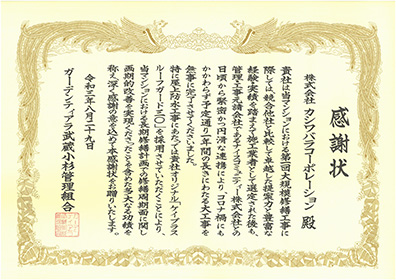 感謝状
株式会社 カシワバラコーポレーション 殿
貴社は当マンションにおける第二回大規模修繕工事に
際しては競合他社と比較して卓越した提案力と豊富な
経験実績を踏まえて施工業者として選定された後も、
管理工事元請会社であるナイスコミュニティー株式会社との
日頃から緊密かつ円滑な連携により、コロナ禍にも
かかわらず予定通り一年間の長きにわたる大工事を
無事に完了させてくださいました。
特に屋上防水工事にあたっては貴社オリジナル「ケイプラス
ルーフガード三〇」を採用させていただくことにより、
当マンションにおける長期修繕計画での修繕周期面に関し
画期的改善を実現くださったことを含めた多大なる功績を
称え深く感謝の意を込めて本感謝状をお贈りいたします。
令和三年八月二十九日
ガーデンティアラ武蔵小杉管理組合